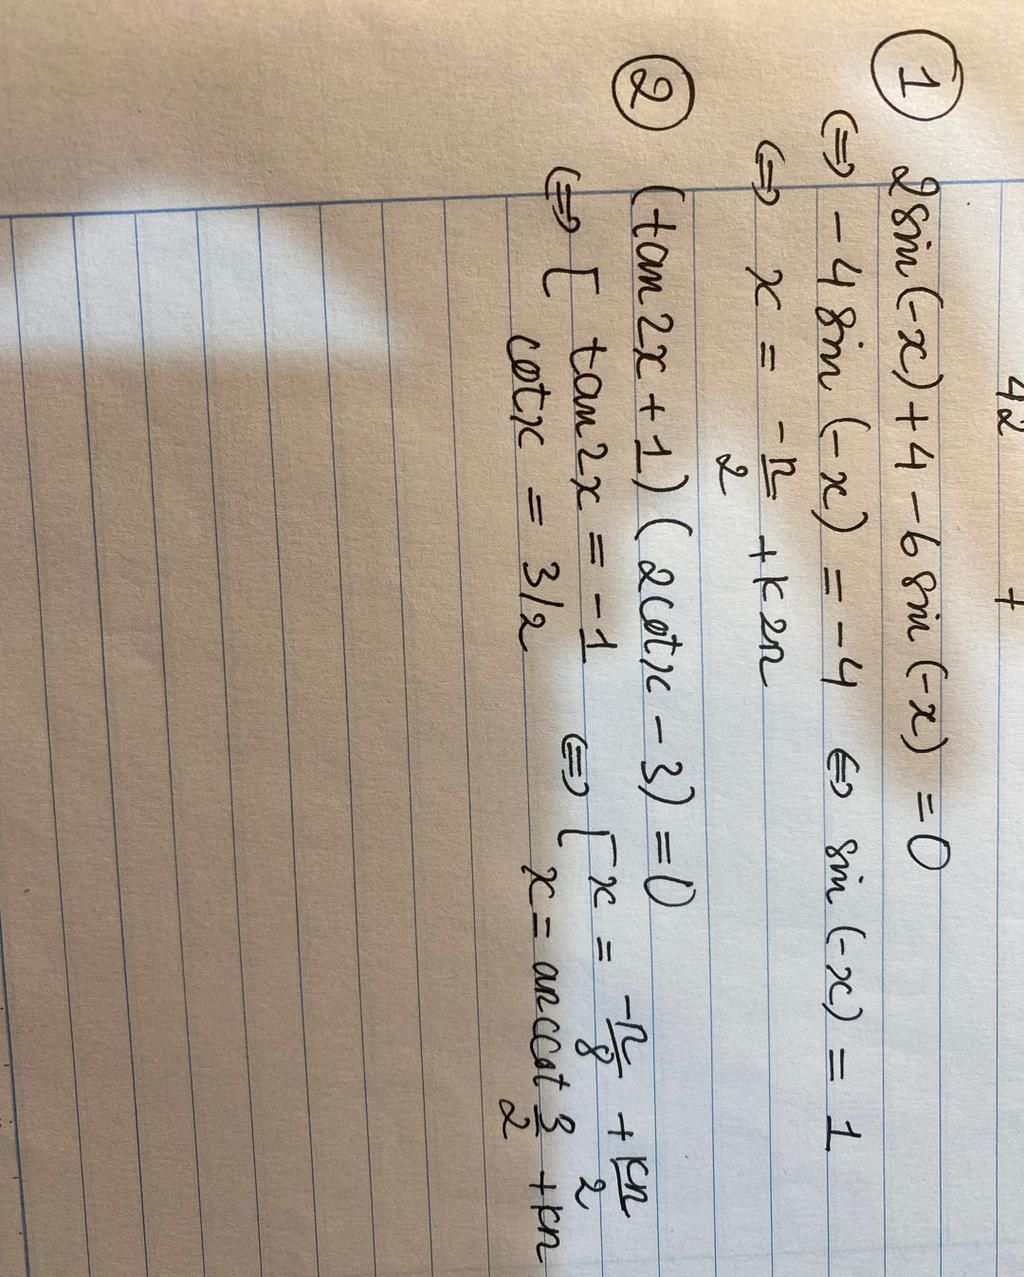 42 +
① 2sin(-x) + 4 - 6sin(-x) = 0
⇔ -4sin(-x) = -4 ⇔ sin(-x) = 1
⇔ x = -π/2 + k2π
② (tan2x + 1)(2cotx - 3) = 0
⇔ [ tan2x = -1 ⇔ [ x = -π/8 + kπ/2
cotx = 3/2 x = arccot 3/2 + kπ